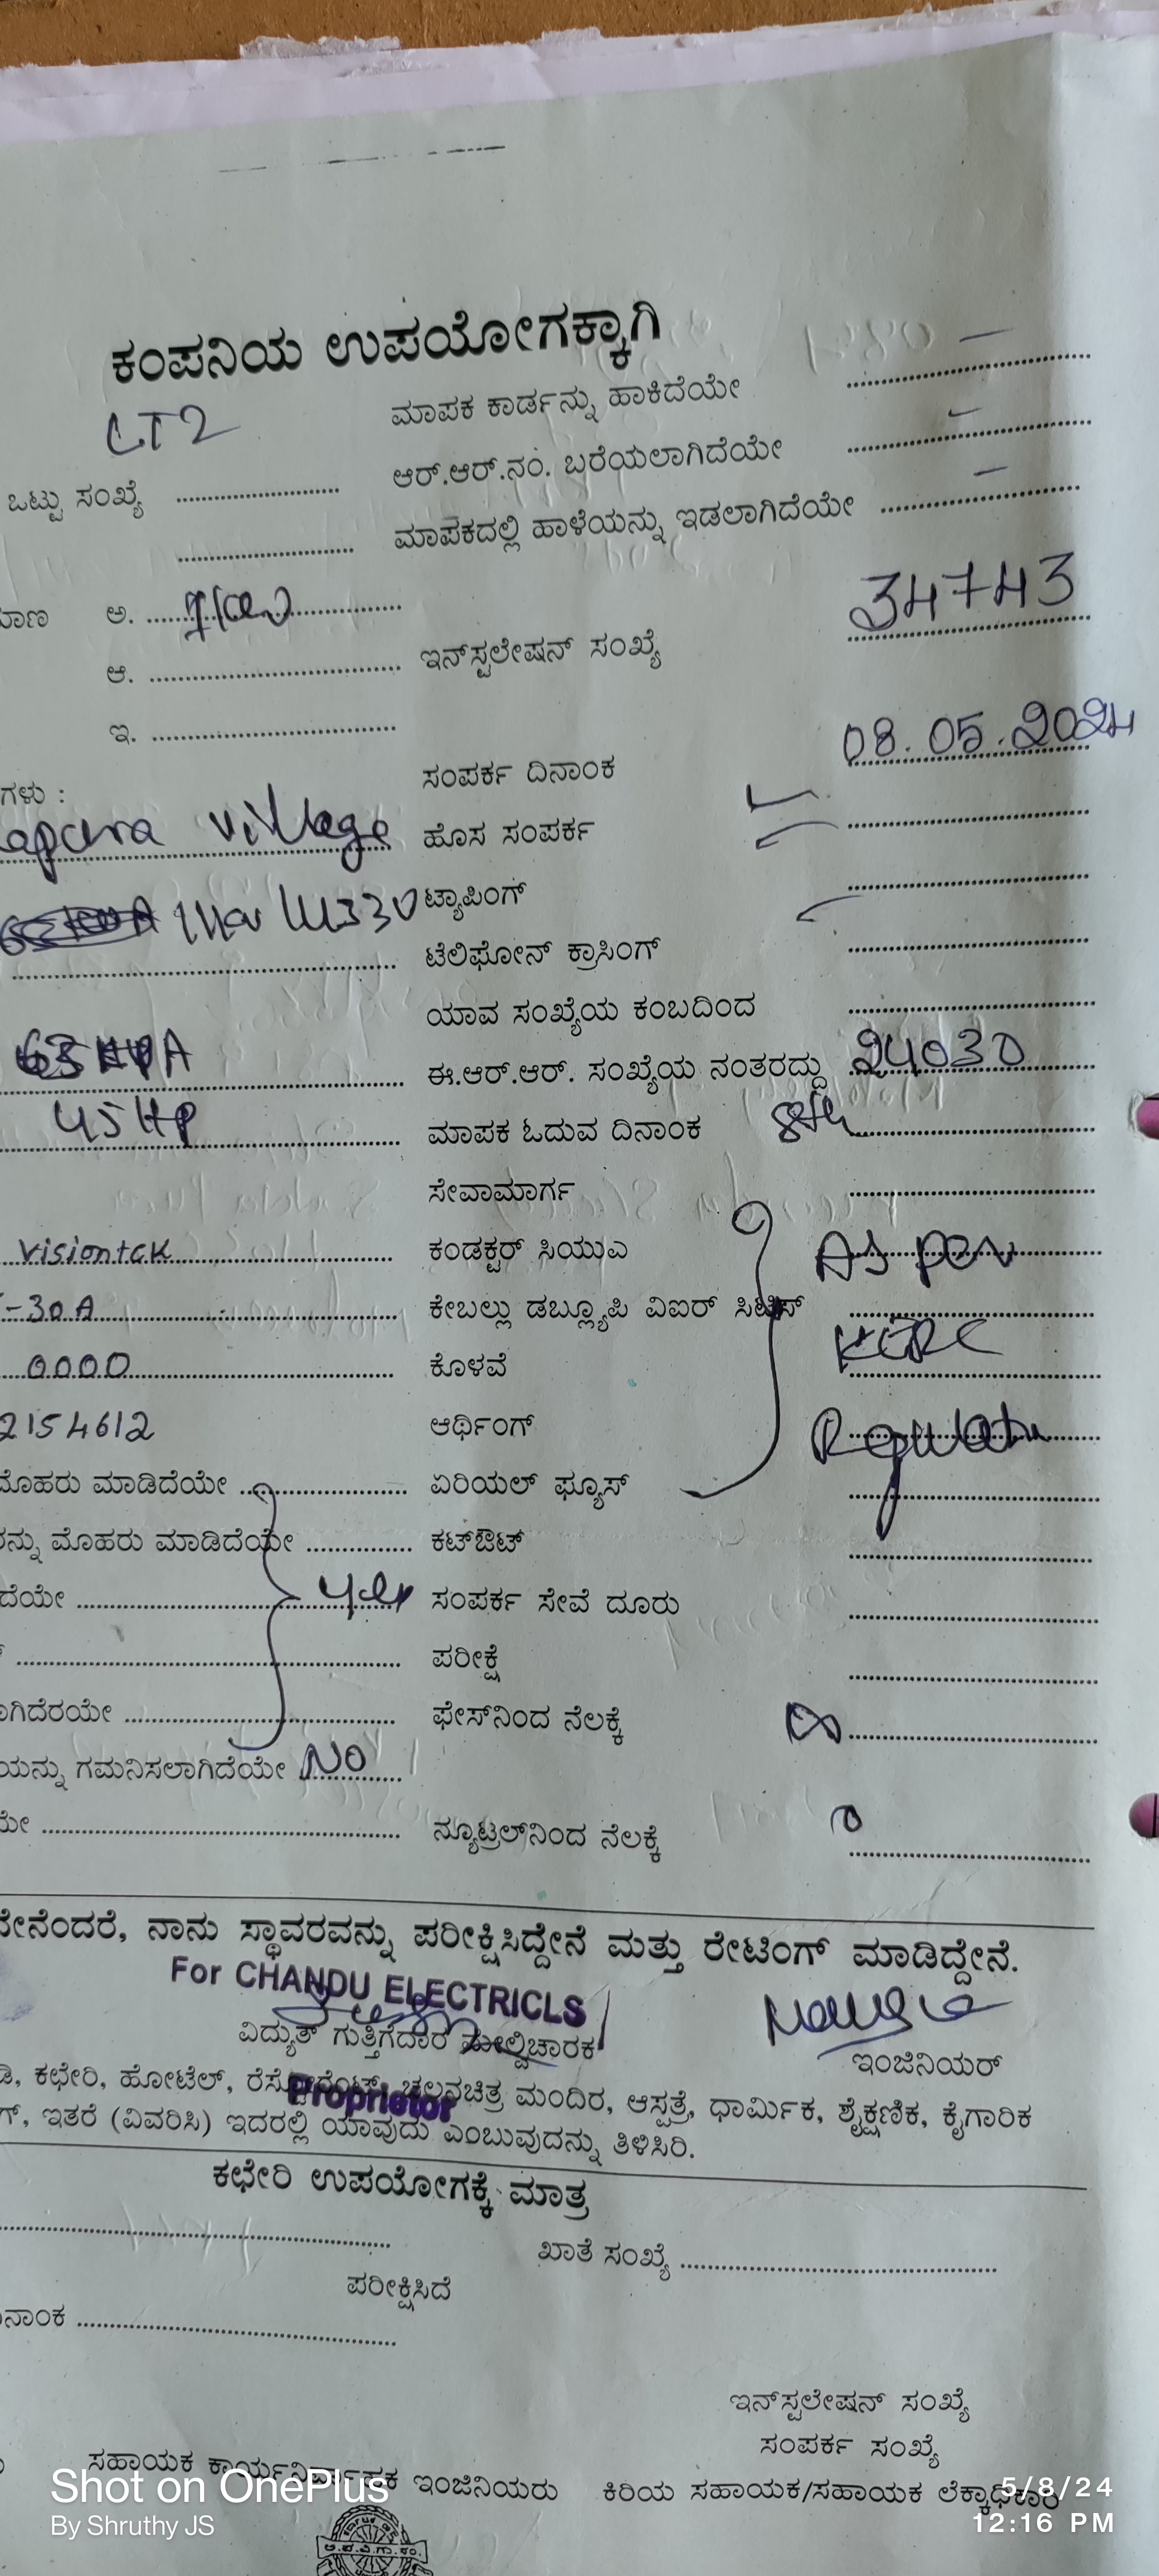 ಕಂಪನಿಯ ಉಪಯೋಗಕ್ಕಾಗಿ
LT2
ಮಾಪಕ ಕಾರ್ಡನ್ನು ಹಾಕಿದೆಯೇ
ಒಟ್ಟು ಸಂಖ್ಯೆ
ಆರ್.ಆರ್.ನಂ. ಬರೆಯಲಾಗಿದೆಯೇ
ಮಾಪಕದಲ್ಲಿ ಹಾಳೆಯನ್ನು ಇಡಲಾಗಿದೆಯೇ
ಅ.
ಆ. ಇನ್‌ಸ್ಟಲೇಷನ್ ಸಂಖ್ಯೆ 34743
ಇ.
ಸಂಪರ್ಕ ದಿನಾಂಕ 08.05.2024
ಗಳು :
village ಹೊಸ ಸಂಪರ್ಕ
ಟ್ಯಾಪಿಂಗ್
ಟೆಲಿಫೋನ್ ಕ್ರಾಸಿಂಗ್
ಯಾವ ಸಂಖ್ಯೆಯ ಕಂಬದಿಂದ
63 KVA ಈ.ಆರ್.ಆರ್. ಸಂಖ್ಯೆಯ ನಂತರದ್ದು 24030
45 HP ಮಾಪಕ ಓದುವ ದಿನಾಂಕ 8th
ಸೇವಾಮಾರ್ಗ
visiontek ಕಂಡಕ್ಟರ್ ಸಿಯುಎ As per
-30A ಕೇಬಲ್ಲು ಡಬ್ಲ್ಯೂಪಿ ವಿಐರ್ ಸಿಟಿಸ್
0000 ಕೊಳವೆ KERC
2154612 ಆರ್ಥಿಂಗ್
ಮೊಹರು ಮಾಡಿದೆಯೇ ಏರಿಯಲ್ ಫ್ಯೂಸ್
ಮೊಹರು ಮಾಡಿದೆಯೇ ಕಟ್‌ಔಟ್
ದೆಯೇ yes ಸಂಪರ್ಕ ಸೇವೆ ದೂರು
ಪರೀಕ್ಷೆ
ಗಿದೆರಯೇ ಫೇಸ್‌ನಿಂದ ನೆಲಕ್ಕೆ ∞
ಯನ್ನು ಗಮನಿಸಲಾಗಿದೆಯೇ NO
ಯೇ ನ್ಯೂಟ್ರಲ್‌ನಿಂದ ನೆಲಕ್ಕೆ 0
ನೇನೆಂದರೆ, ನಾನು ಸ್ಥಾವರವನ್ನು ಪರೀಕ್ಷಿಸಿದ್ದೇನೆ ಮತ್ತು ರೇಟಿಂಗ್ ಮಾಡಿದ್ದೇನೆ.
For CHANDU ELECTRICLS
ವಿದ್ಯುತ್ ಗುತ್ತಿಗೆದಾರ ಮೇಲ್ವಿಚಾರಕ ಇಂಜಿನಿಯರ್
ಡಿ, ಕಛೇರಿ, ಹೋಟೆಲ್, ರೆಸ್ಟೋರೆಂಟ್, ಚಲನಚಿತ್ರ ಮಂದಿರ, ಆಸ್ಪತ್ರೆ, ಧಾರ್ಮಿಕ, ಶೈಕ್ಷಣಿಕ, ಕೈಗಾರಿಕ
Proprietor
ಗ್, ಇತರೆ (ವಿವರಿಸಿ) ಇದರಲ್ಲಿ ಯಾವುದು ಎಂಬುವುದನ್ನು ತಿಳಿಸಿರಿ.
ಕಛೇರಿ ಉಪಯೋಗಕ್ಕೆ ಮಾತ್ರ
ಖಾತೆ ಸಂಖ್ಯೆ
ಪರೀಕ್ಷಿಸಿದೆ
ನಾಂಕ
ಇನ್‌ಸ್ಟಲೇಷನ್ ಸಂಖ್ಯೆ
ಸಂಪರ್ಕ ಸಂಖ್ಯೆ
ಸಹಾಯಕ ಕಾರ್ಯನಿರ್ವಾಹಕ ಇಂಜಿನಿಯರು ಕಿರಿಯ ಸಹಾಯಕ/ಸಹಾಯಕ ಲೆಕ್ಕಾಧಿಕಾರಿ
Shot on OnePlus
By Shruthy JS
5/8/24
12:16 PM